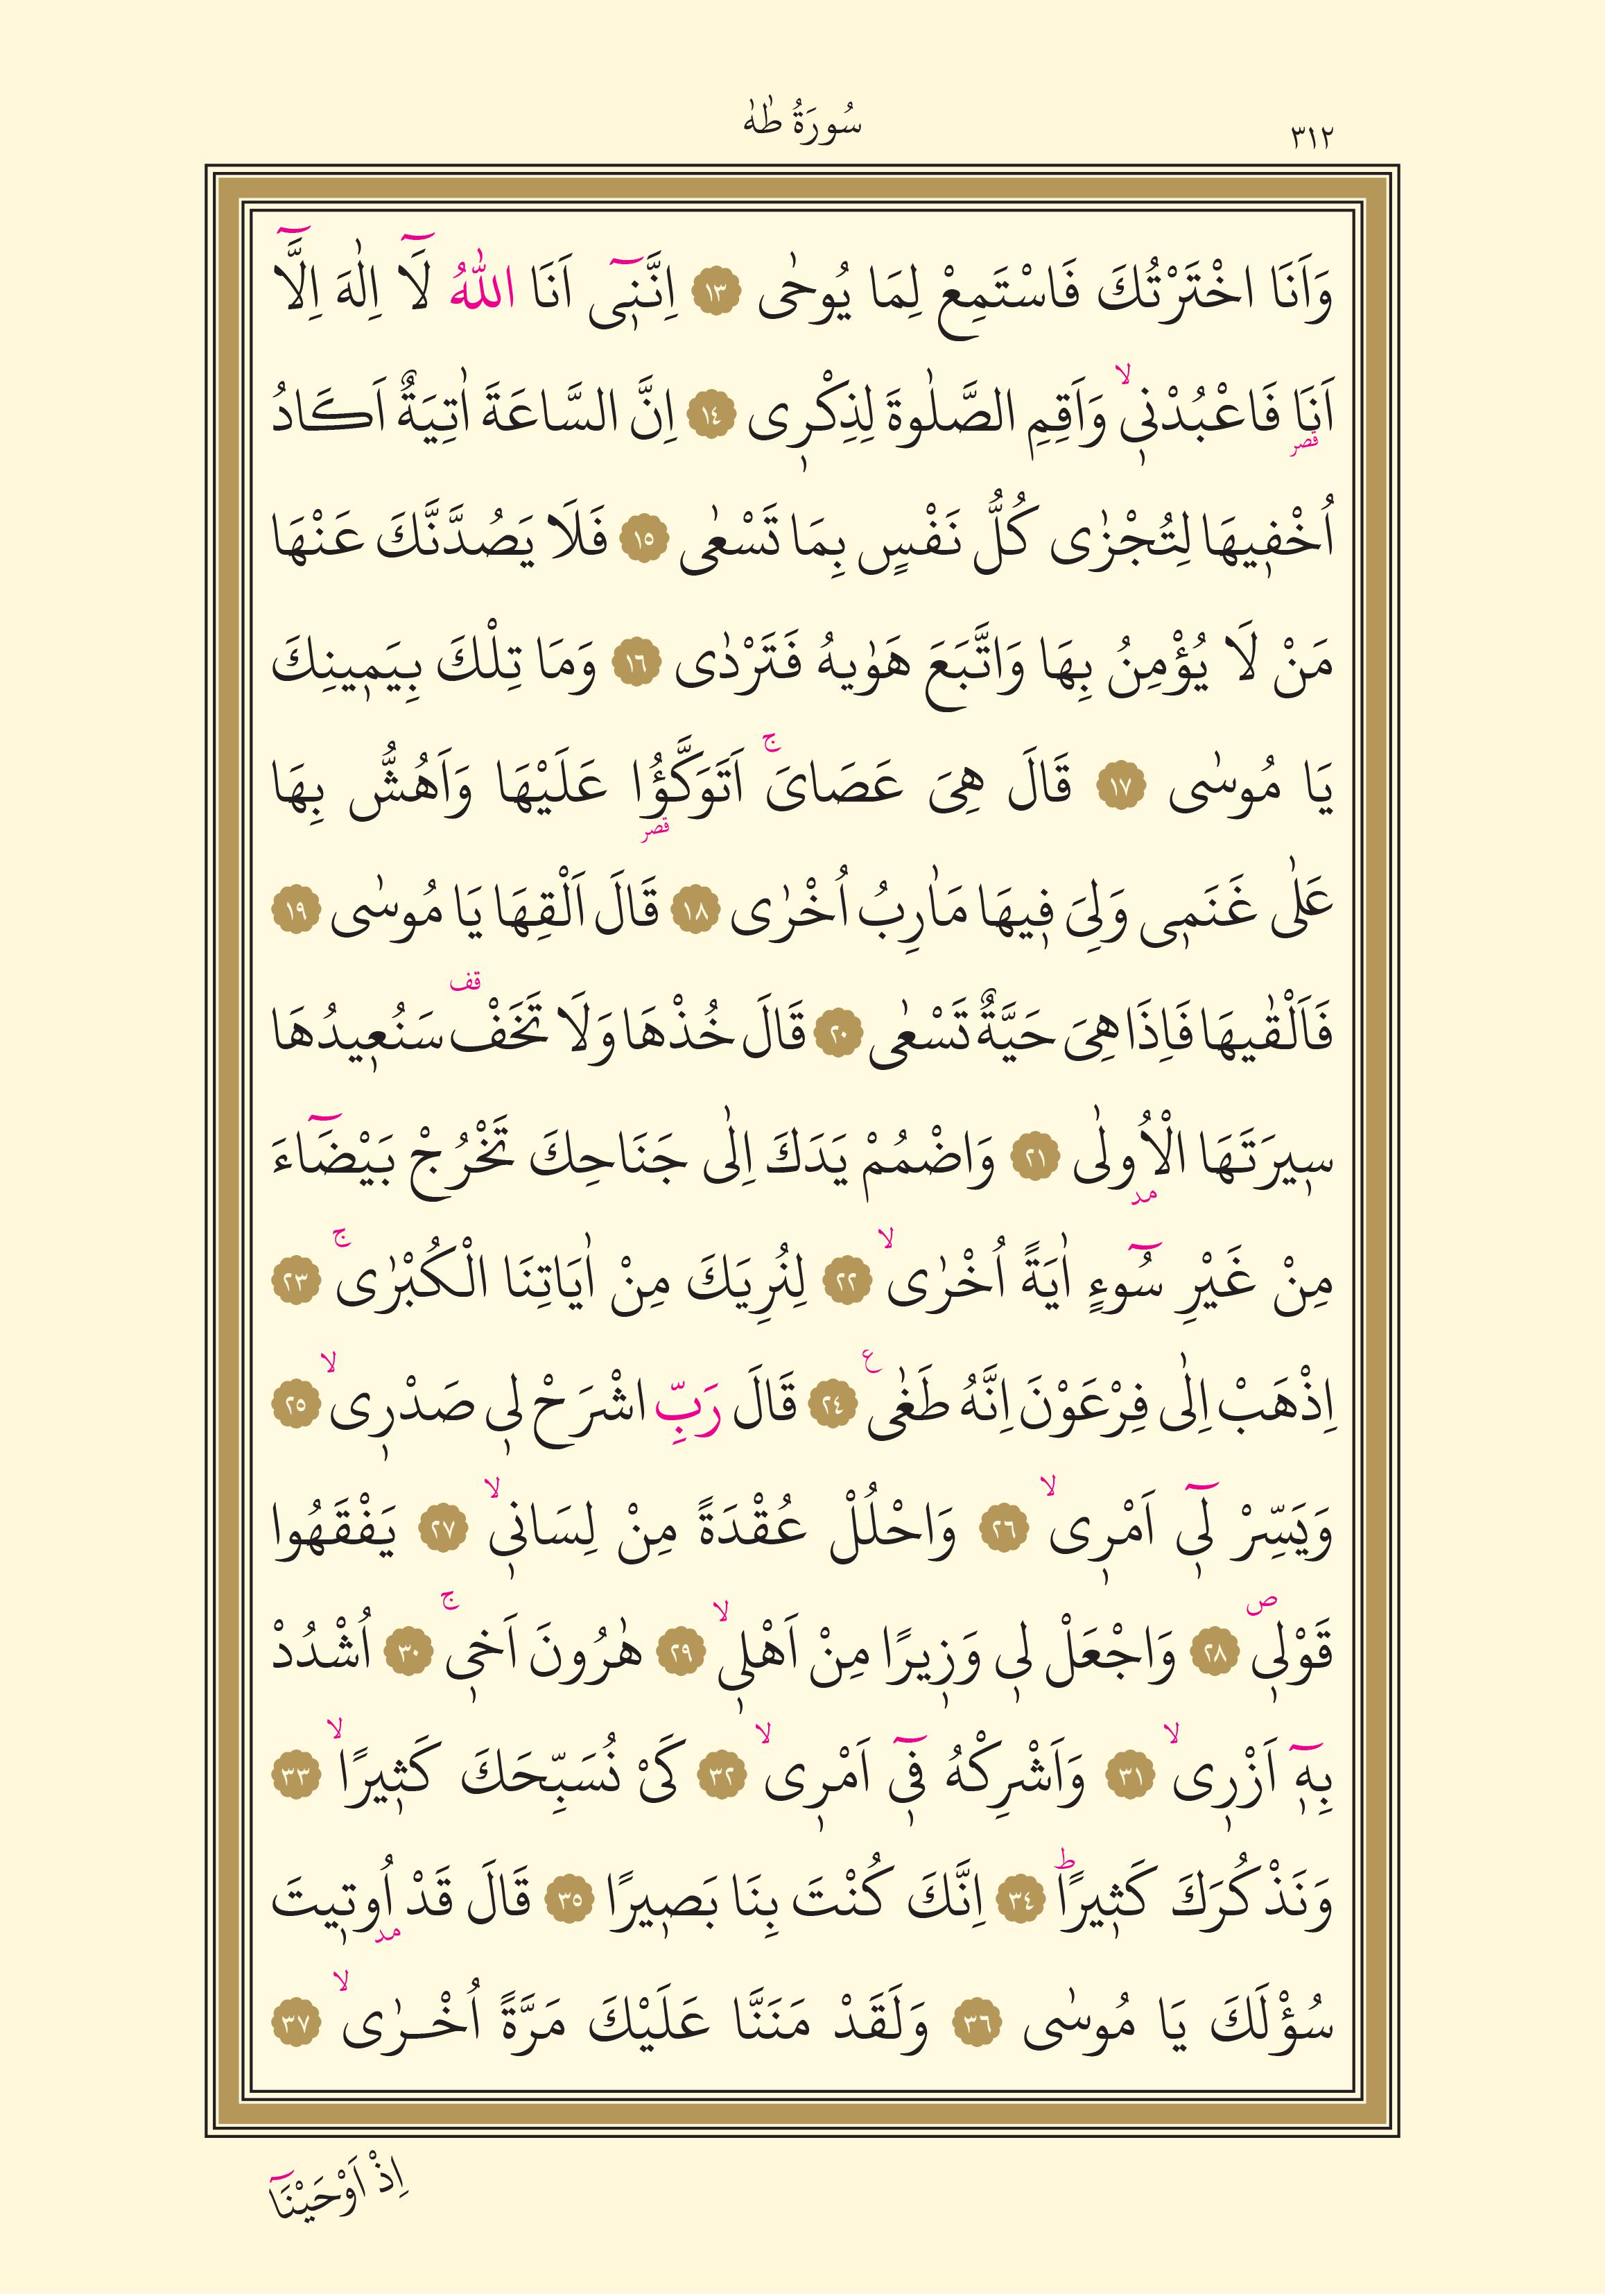 ٣١٢
سُورَةُ طٰهٰ
وَاَنَا اخْتَرْتُكَ فَاسْتَمِعْ لِمَا يُوحٰى ١٣ اِنَّنٖٓى اَنَا اللّٰهُ لَٓا اِلٰهَ اِلَّٓا
اَنَا۬ فَاعْبُدْنٖىۙ وَاَقِمِ الصَّلٰوةَ لِذِكْرٖى ١٤ اِنَّ السَّاعَةَ اٰتِيَةٌ اَكَادُ
قصر
اُخْفٖيهَا لِتُجْزٰى كُلُّ نَفْسٍ بِمَا تَسْعٰى ١٥ فَلَا يَصُدَّنَّكَ عَنْهَا
مَنْ لَا يُؤْمِنُ بِهَا وَاتَّبَعَ هَوٰيهُ فَتَرْدٰى ١٦ وَمَا تِلْكَ بِيَمٖينِكَ
يَا مُوسٰى ١٧ قَالَ هِىَ عَصَاىَۚ اَتَوَكَّؤُ۬ا عَلَيْهَا وَاَهُشُّ بِهَا
قصر
عَلٰى غَنَمٖى وَلِىَ فٖيهَا مَاٰرِبُ اُخْرٰى ١٨ قَالَ اَلْقِهَا يَا مُوسٰى ١٩
فَاَلْقٰيهَا فَاِذَا هِىَ حَيَّةٌ تَسْعٰى ٢٠ قَالَ خُذْهَا وَلَا تَخَفْ قف سَنُعٖيدُهَا
سٖيرَتَهَا الْاُولٰى ٢١ وَاضْمُمْ يَدَكَ اِلٰى جَنَاحِكَ تَخْرُجْ بَيْضَٓاءَ
مد
مِنْ غَيْرِ سُٓوءٍ اٰيَةً اُخْرٰىۙ ٢٢ لِنُرِيَكَ مِنْ اٰيَاتِنَا الْكُبْرٰىۚ ٢٣
اِذْهَبْ اِلٰى فِرْعَوْنَ اِنَّهُ طَغٰى ع ٢٤ قَالَ رَبِّ اشْرَحْ لٖى صَدْرٖىۙ ٢٥
وَيَسِّرْ لٖٓى اَمْرٖىۙ ٢٦ وَاحْلُلْ عُقْدَةً مِنْ لِسَانٖىۙ ٢٧ يَفْقَهُوا
قَوْلٖى ص ٢٨ وَاجْعَلْ لٖى وَزٖيرًا مِنْ اَهْلٖىۙ ٢٩ هٰرُونَ اَخٖىۚ ٣٠ اُشْدُدْ
بِهٖٓ اَزْرٖىۙ ٣١ وَاَشْرِكْهُ فٖٓى اَمْرٖىۙ ٣٢ كَىْ نُسَبِّحَكَ كَثٖيرًاۙ ٣٣
وَنَذْكُرَكَ كَثٖيرًاؕ ٣٤ اِنَّكَ كُنْتَ بِنَا بَصٖيرًا ٣٥ قَالَ قَدْ اُوتٖيتَ
مد
سُؤْلَكَ يَا مُوسٰى ٣٦ وَلَقَدْ مَنَنَّا عَلَيْكَ مَرَّةً اُخْـرٰىۙ ٣٧
اِذْ اَوْحَيْنَٓا